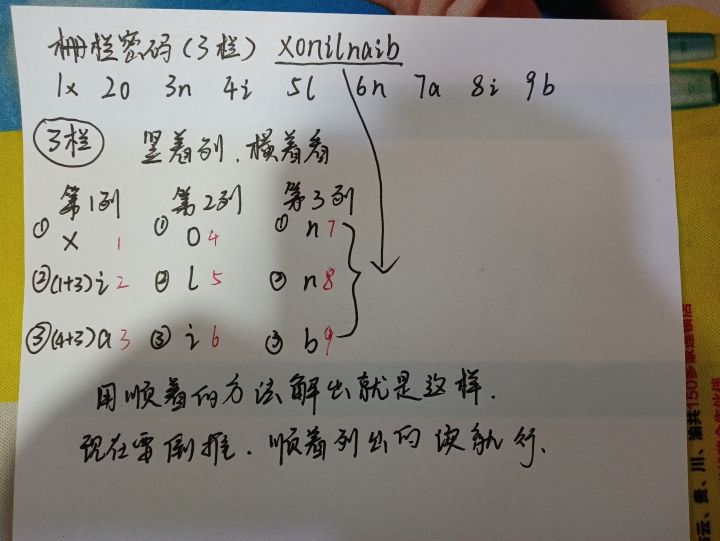 栅栏密码(3栏) xonilnaib
1x 2o 3n 4i 5l 6n 7a 8i 9b
3栏 竖着列,横着看
第1列 第2列 第3列
① x 1 ① o 4 ① n 7
②(1+3)i 2 ② l 5 ② n 8
③(4+3)a 3 ③ i 6 ③ b 9
用顺着的方法解出就是这样.
现在需倒推.顺着列出的读就行.
150多家连锁店
云、贵、川、渝共